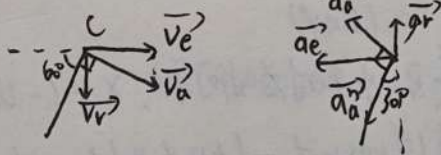 C
60°
v_e
v_a
v_r
a_r
a_e
a_a^n
30°